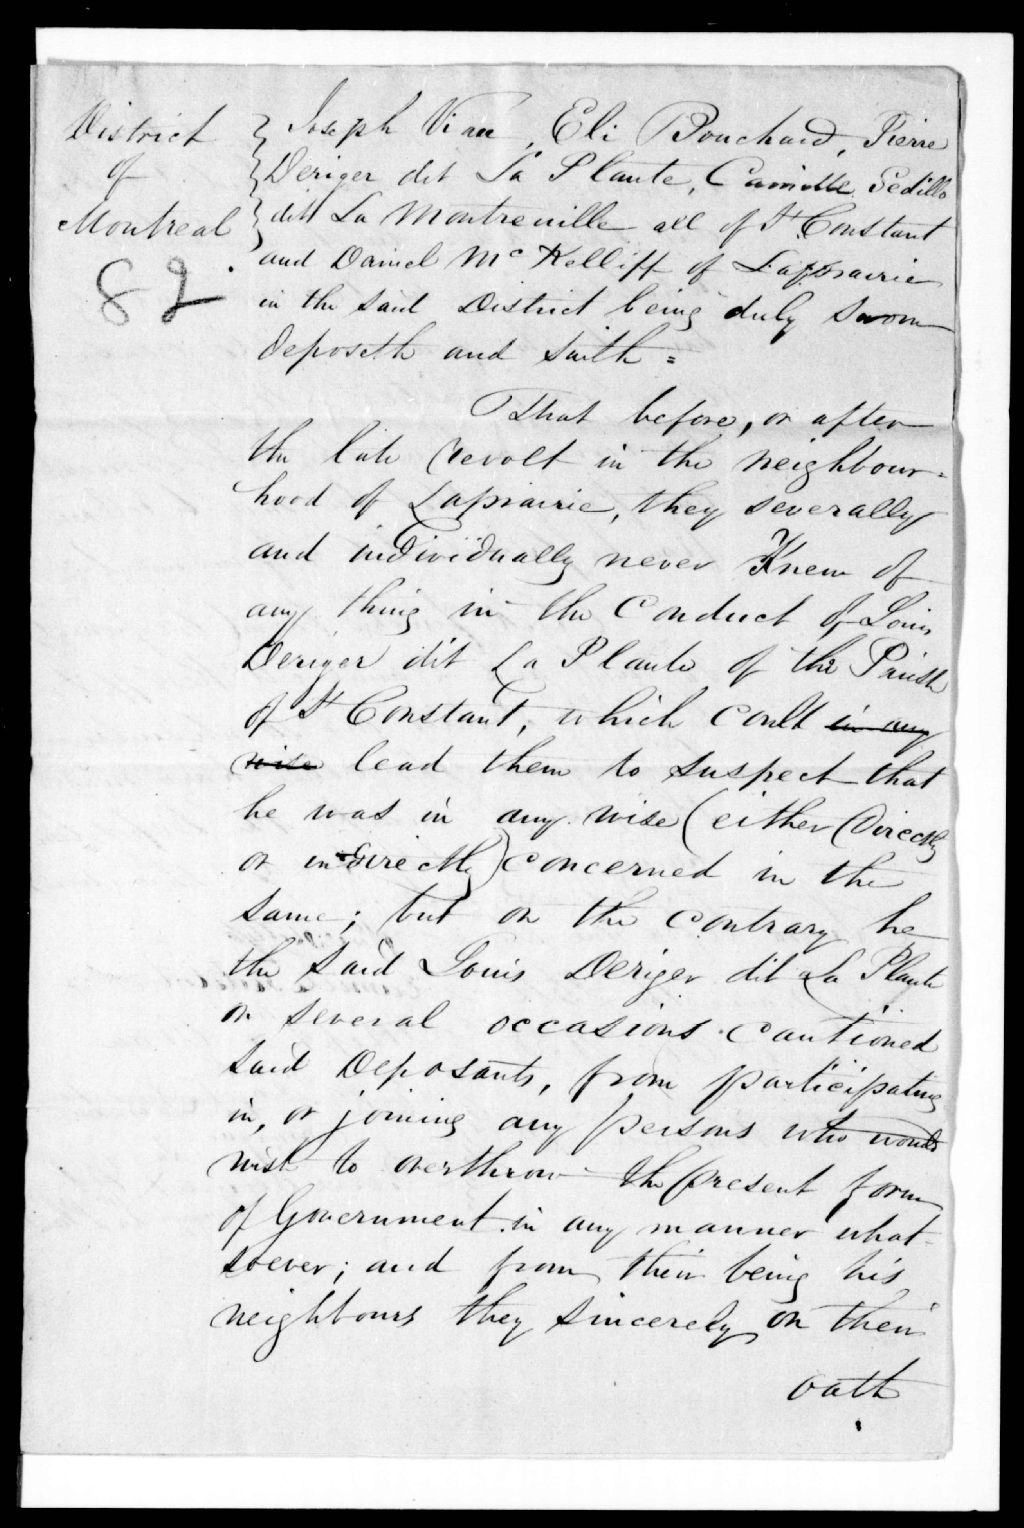 District
of
Montreal
82.
Joseph Viau, Eli Bouchard, Pierre
Deriger dit La Plante, Camille Pedillo
dit La Montreuille all of St Constant
and Daniel Mc Kelliff of Laprairie
in the said District being duly sworn
deposeth and saith =
That before, or after
the late revolt in the neighbour-
hood of Laprairie, they severally
and individually never Knew of
any thing in the Conduct of Louis
Deriger dit La Plante of the Parish
of St Constant, which could in any
wise lead them to suspect that
he was in any wise (either Directly
or indirectly) concerned in the
same; but on the contrary he
the said Louis Deriger dit La Plante
on several occasions cautioned
said Deposants, from participating
in, or joining any persons who would
wish to overthrow the present form
of Government in any manner what-
soever; and from their being his
neighbours they sincerely on their
oath